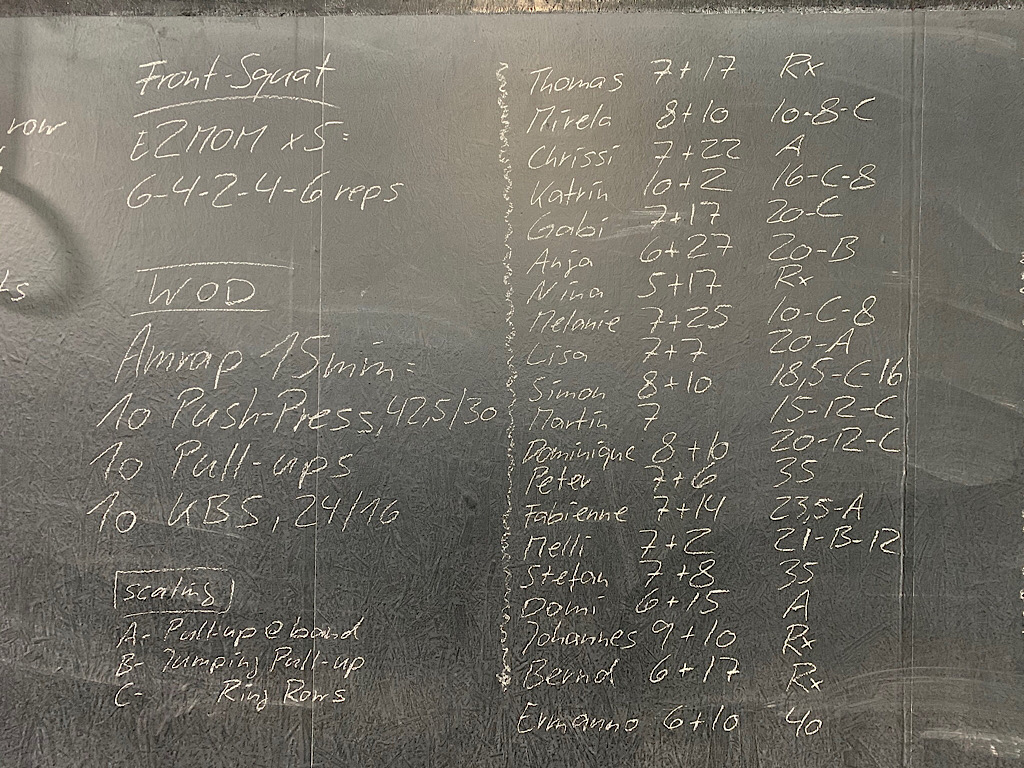 row
ts
Front-Squat
E2MOM x5:
6-4-2-4-6 reps
WOD
Amrap 15min:
10 Push-Press, 42,5/30
10 Pull-ups
10 KBS, 24/16
scaling
A- Pull-up @ band
B- Jumping Pull-up
C- Ring Rows
Thomas 7+17 Rx
Mirela 8+10 10-8-C
Chrissi 7+22 A
Katrin 10+2 16-C-8
Gabi 7+17 20-C
Anja 6+27 20-B
Nina 5+17 Rx
Melanie 7+25 10-C-8
Lisa 7+7 20-A
Simon 8+10 18,5-C-16
Martin 7 15-12-C
Dominique 8+10 20-12-C
Peter 7+6 35
Fabienne 7+14 23,5-A
Melli 7+2 21-B-12
Stefan 7+8 35
Domi 6+15 A
Johannes 9+10 Rx
Bernd 6+17 Rx
Ermanno 6+10 40